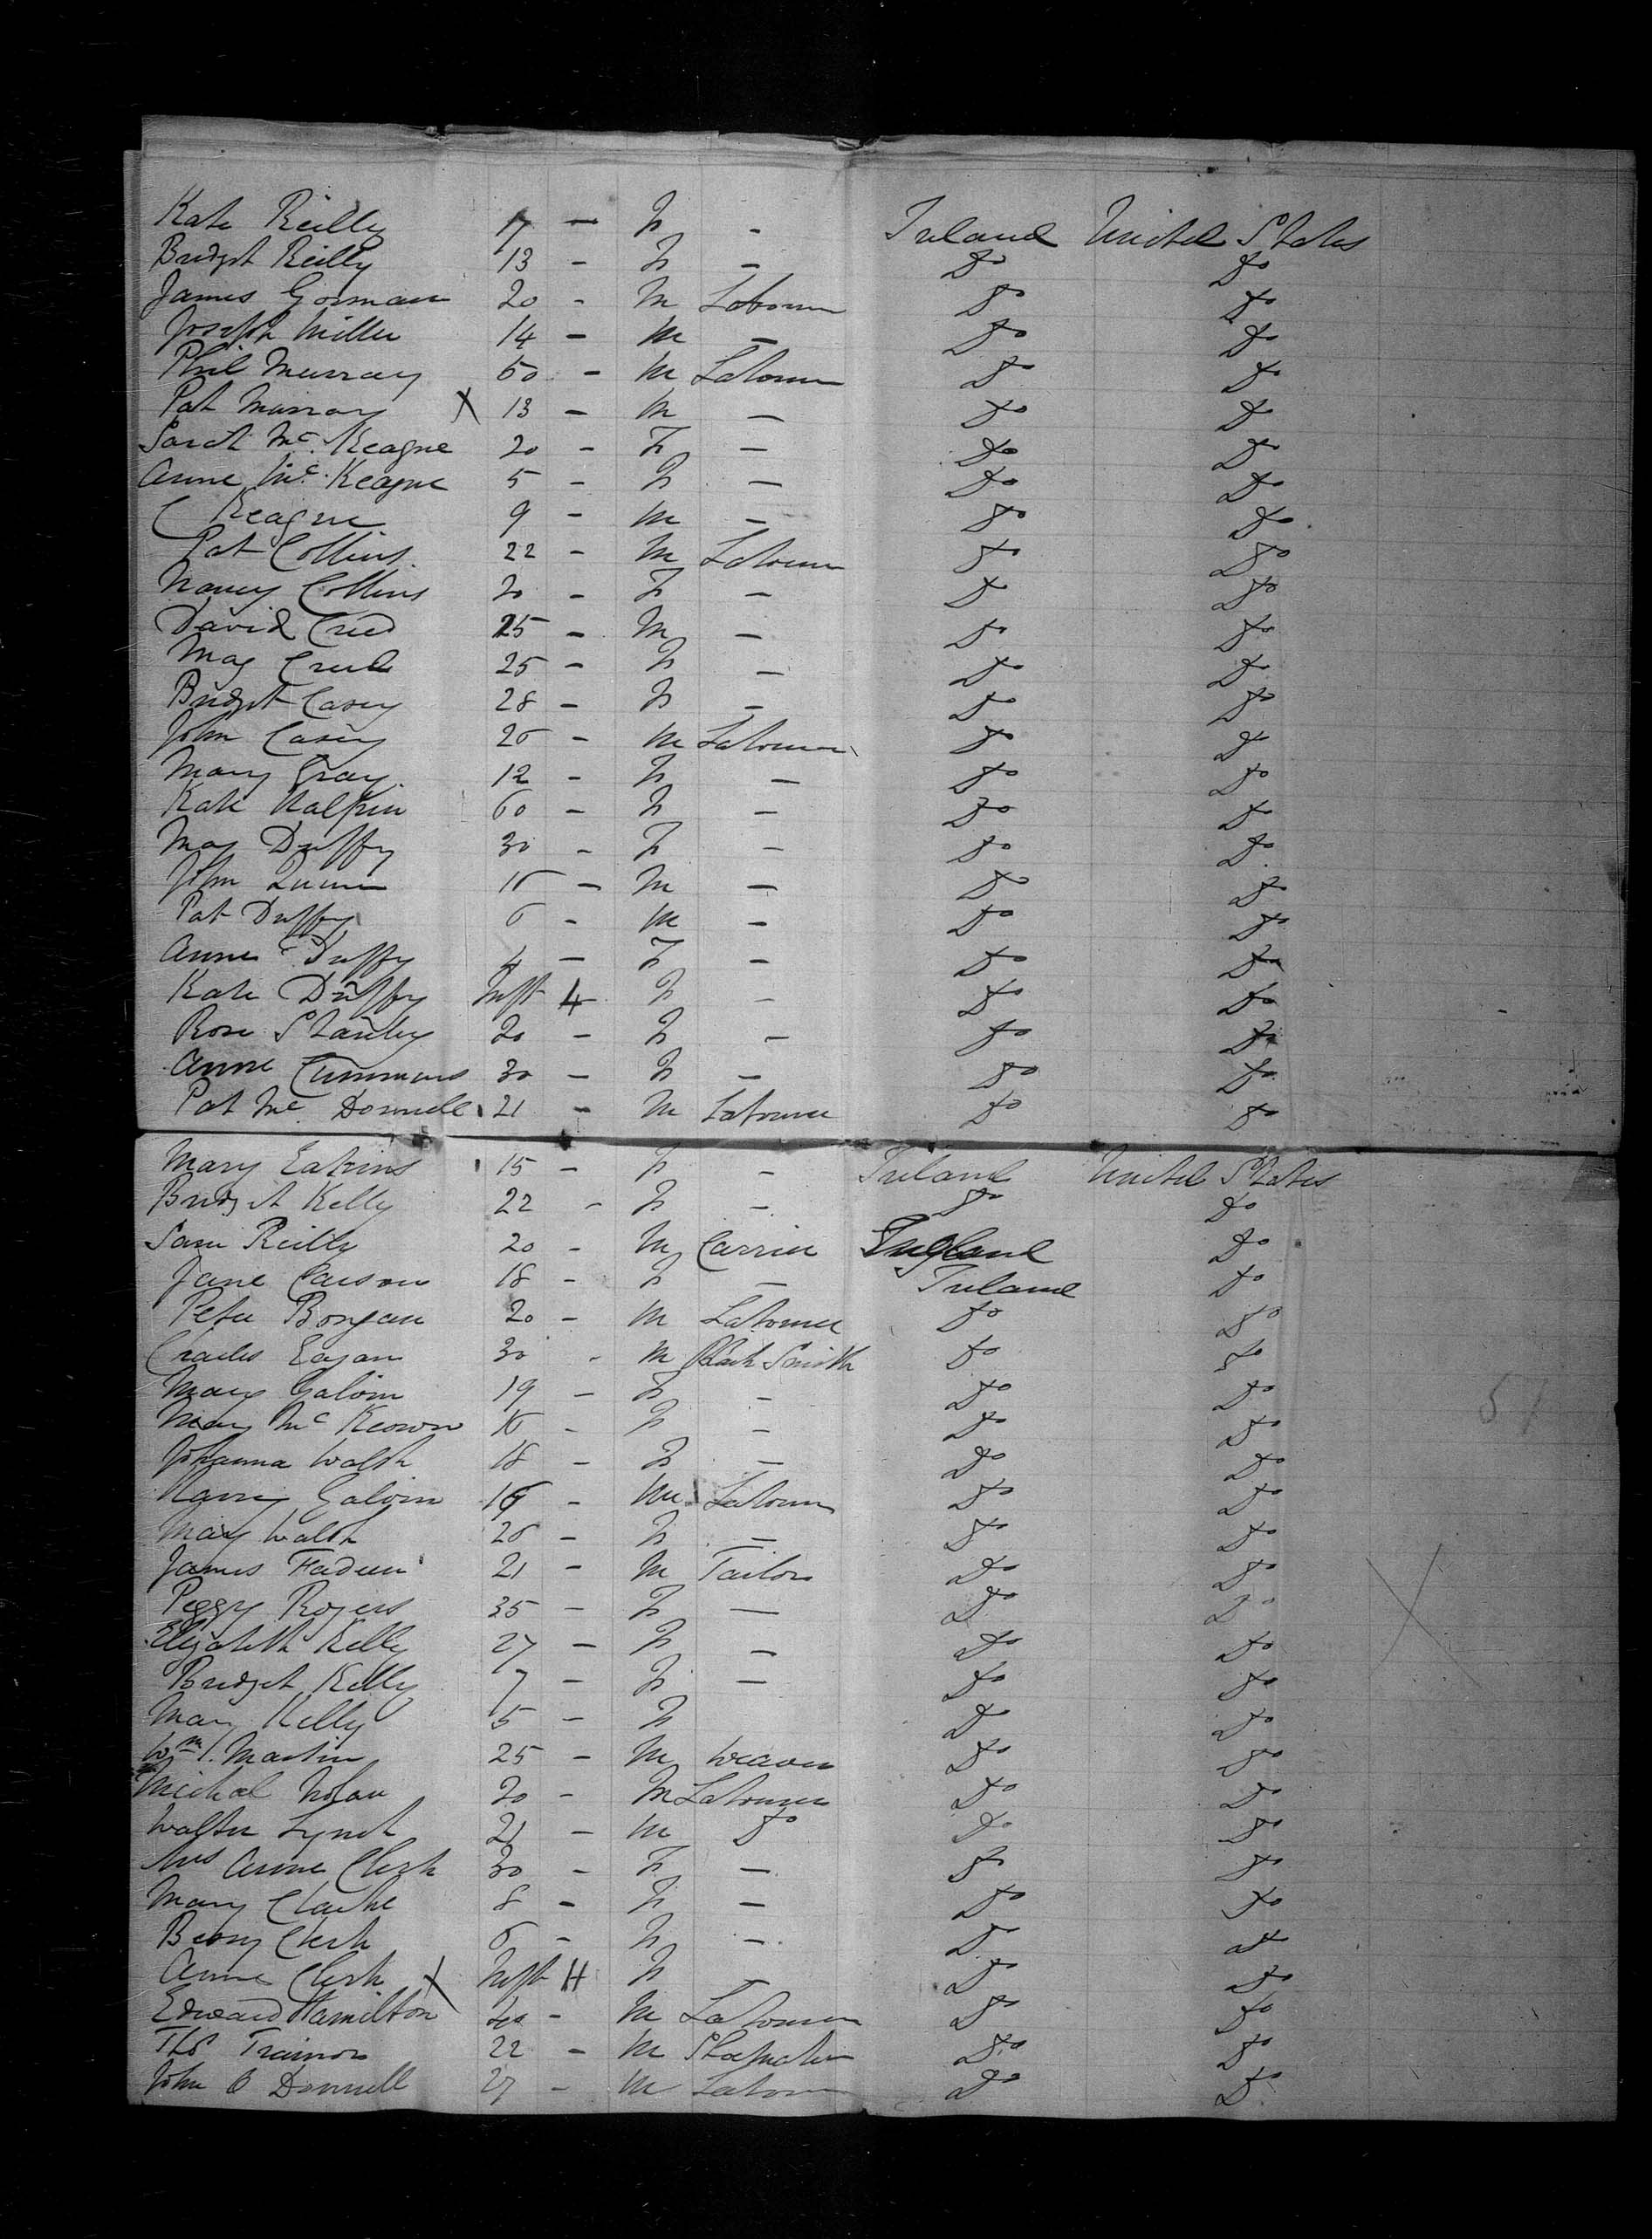 Kate Reilly 17 — F - Ireland United States
Bridget Reilly 13 - F - Do Do
James Gorman 20 - M Labourer Do Do
Joseph Miller 14 - M - Do Do
Phil Murray 50 - M Labourer Do Do
Pat Murray X 13 - M - Do Do
Sarah Mc Keague 20 - F - Do Do
Anne Mc Keague 5 - F - Do Do
C Keague 9 - M - Do Do
Pat Collins 22 - M Labourer Do Do
Nancy Collins 20 - F - Do Do
David Creed 25 - M - Do Do
Mag Creed 25 - F - Do Do
Bridget Casey 28 - F - Do Do
John Casey 26 - M Labourer Do Do
Mary Gray 12 - F - Do Do
Kate Halpin 60 - F - Do Do
May Duffy 30 - F - Do Do
John Quinn - M - Do Do
Pat Duffy 6 - M - Do Do
Anne Duffy 4 - F - Do Do
Kate Duffy Inft 4 F - Do Do
Rose Stanley 20 - F - Do Do
Anne Cummins 30 - F - Do Do
Pat Mc Donnell 21 - M Labourer Do Do
Mary Eakins 15 - F - Ireland United States
Bridget Kelly 22 - F - Do Do
Sam Reilly 20 - M Carrier England Do
Jane Carson 18 - F - Ireland Do
Peter Bongan 20 - M Labourer Do Do
Charles Eagan 30 - M Black Smith Do Do
Mary Galvin 19 - F - Do Do
Mary Mc Keown 16 - F - Do Do
Johanna Walsh 18 - F - Do Do
Harry Galvin 16 - M Labourer Do Do
May Walsh 26 - F - Do Do
James Fadeen 21 - M Tailor Do Do
Peggy Rogers 35 - F - Do Do
Elizabeth Kelly 27 - F - Do Do
Bridget Kelly 7 - F - Do Do
Mary Kelly 5 - F Do Do
Wm Martin 25 - M Weaver Do Do
Michal Nolan 20 - M Labourer Do Do
Walter Lynch 21 - M Do Do Do
Mrs Anne Clerk 30 - F - Do Do
Mary Clarke 8 - F - Do Do
Betsy Clerk 6 - F - Do Do
Anne Clerk X Inft 4 F - Do Do
Edward Hamilton 40 - M Labourer Do Do
Thos Trainor 22 - M Shoemaker Do Do
John O Donnell 27 - M Labourer Do Do
51